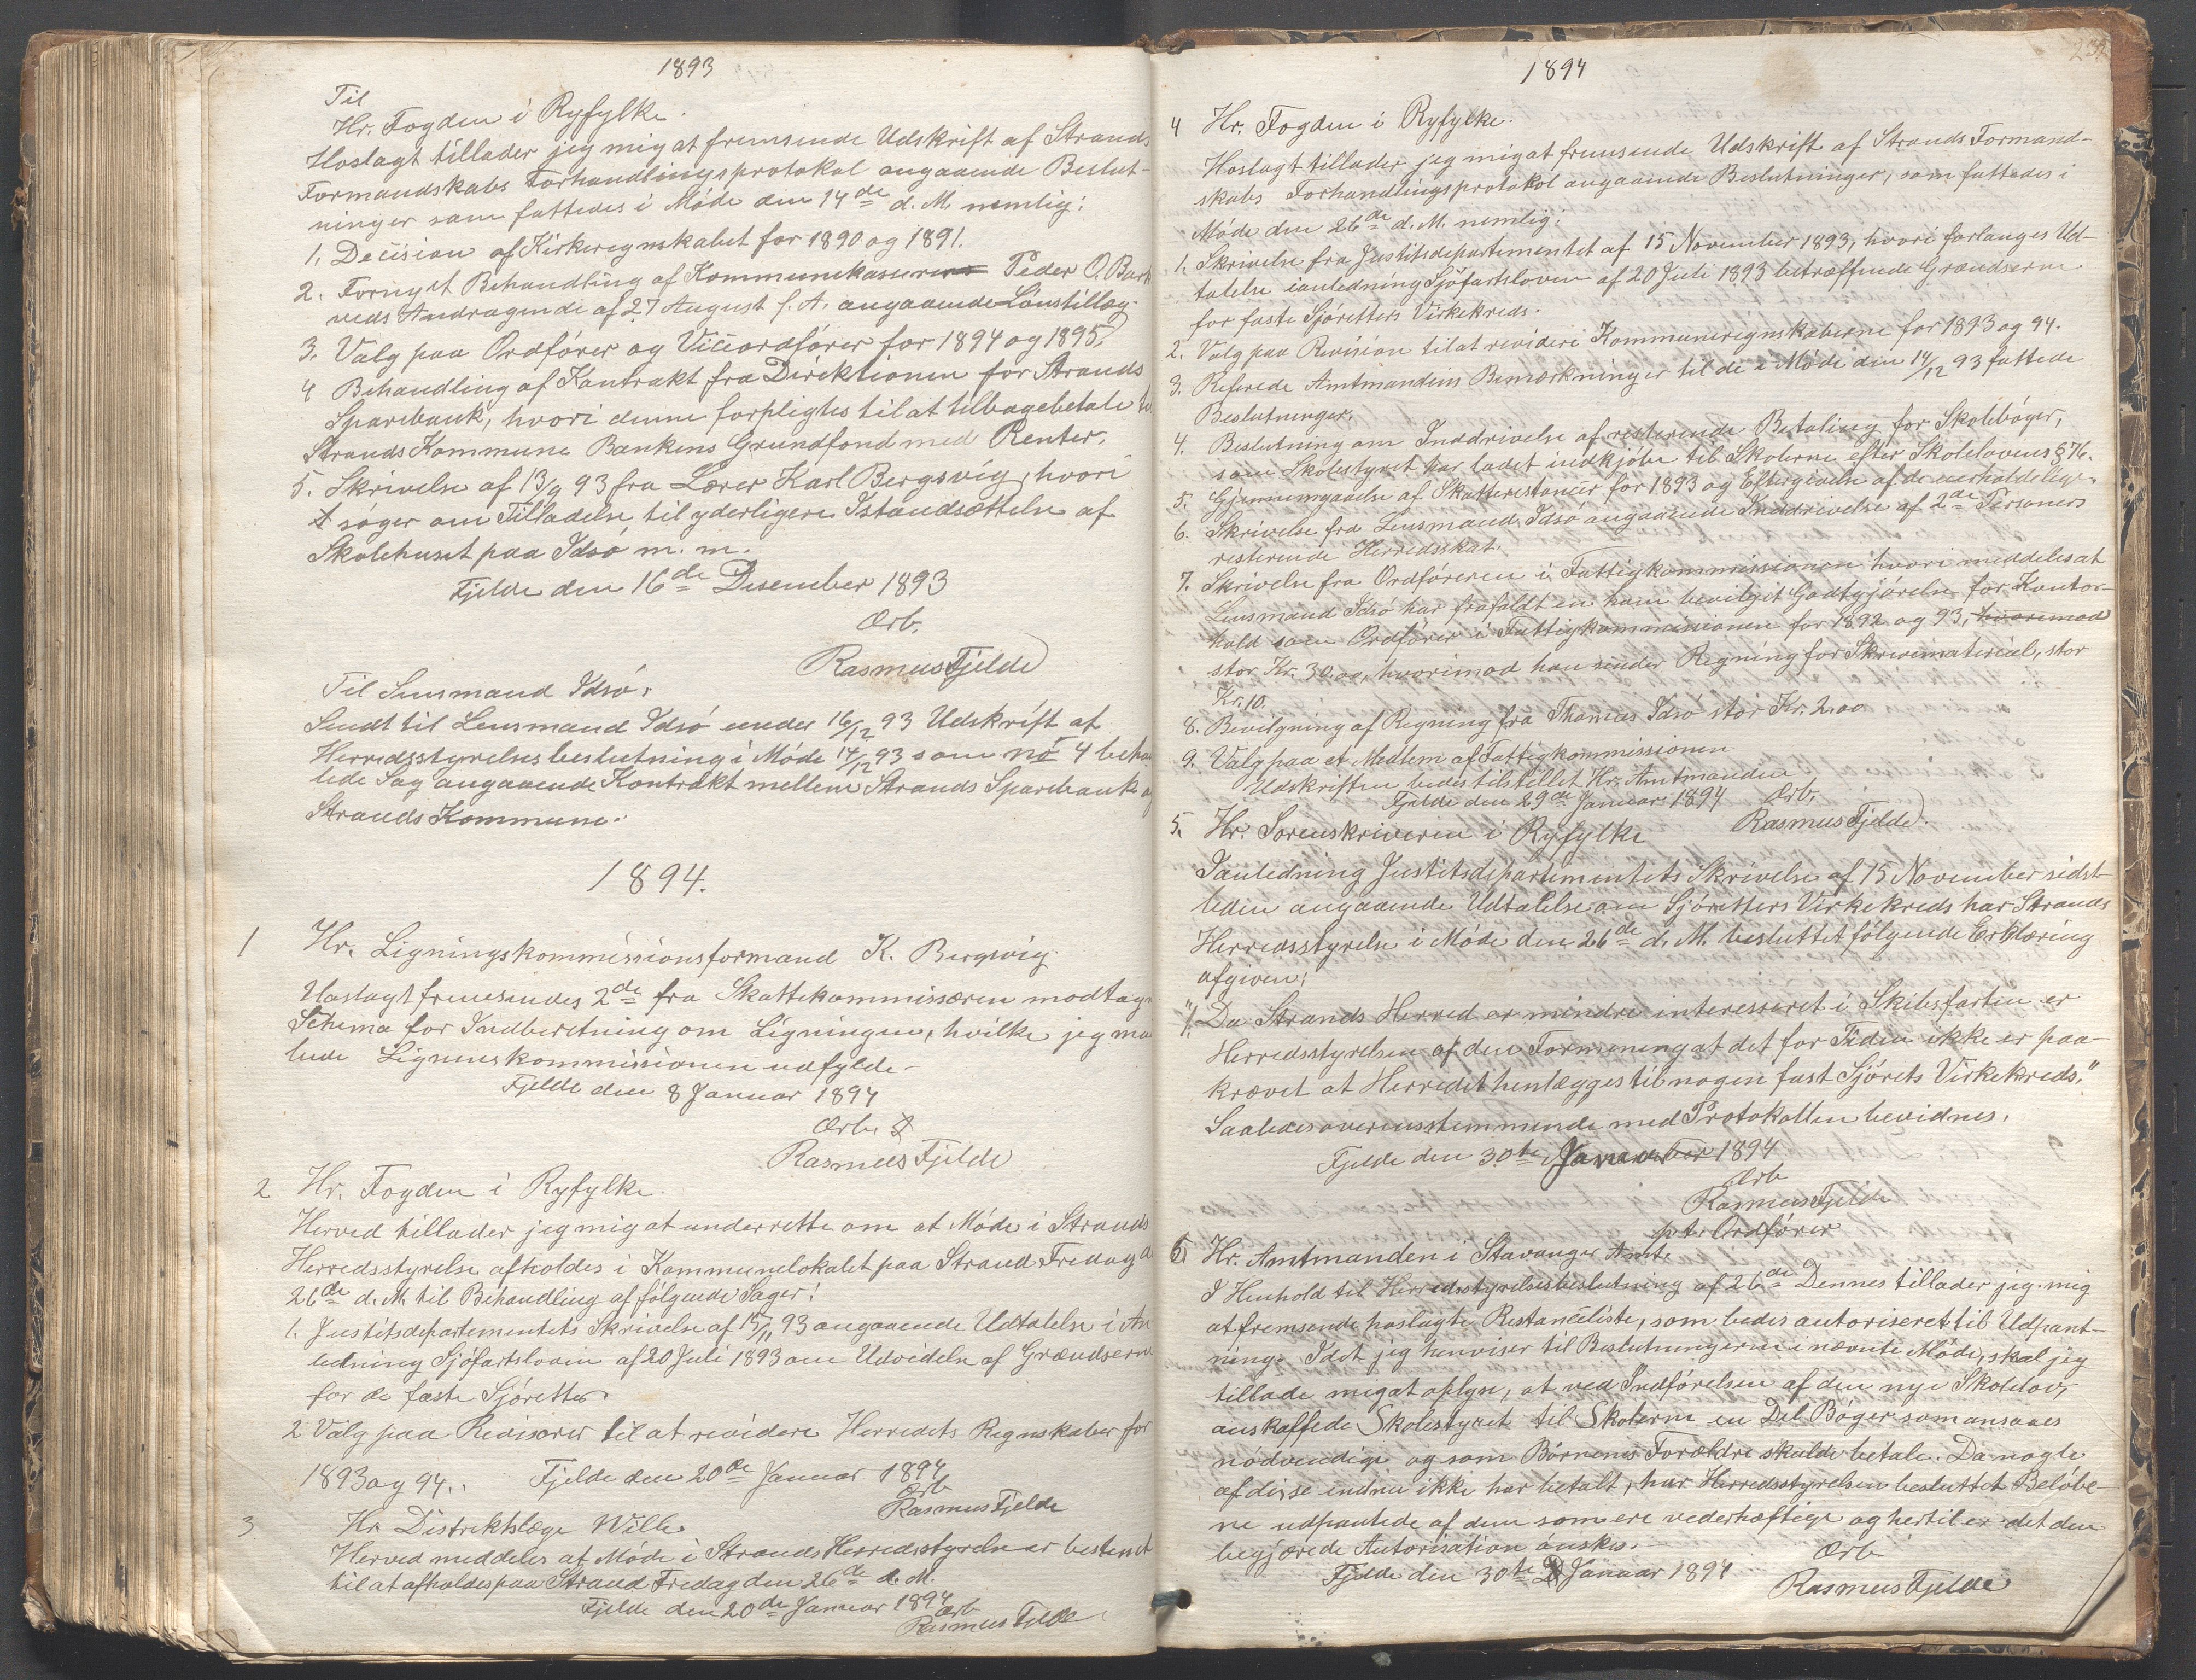 1893
Til
Hr. Fogden i Ryfylke.
Hoslagt tillader jeg mig at fremsende Udskrift af Strands
Formandskabs Forhandlingsprotokol angaaende Beslut-
ninger som fattedes i Møde den 14de d. M. nemlig:
1. Decision af Kirkeregnskabet for 1890 og 1891.
2. Fornyet Behandling af Kommunekaserer Peder O. Bark
veds Andragende af 27 August f. A. angaaende Lønstillæg.
3. Valg paa Ordfører og Viceordfører for 1894 og 1895.
4 Behandling af Kontrakt fra Direktionen for Strands
Sparebank, hvori denne forpligtes til at tilbagebetale
Strands Kommune Bankens Grundfond med Renter.
5. Skrivelse af 13/9 93 fra Lærer Karl Bergsvig, hvori
søger om Tilladelse til yderligere Istandsættelse af
Skolehuset paa Idsø m. m.
Fjelde den 16de Desember 1893
Ærb.
Rasmus Fjelde
Til Lensmand Idsø.
Sendt til Lensmand Idsø under 16/12 93 Udskrift af
Herredsstyrelsesbeslutning i Møde 14/12 93 som no 4 behan
lede Sag angaaende Kontrakt mellem Strands Sparebank og
Strands Kommune.
1894.
1 Hr. Ligningskommissionsformand K. Bergsvig
Hoslagt fremsendes 2de fra Skattekommissæren modtagn
Schema for Indberetning om Ligningen, hvilke jeg maa
bede Ligningskommissionen udfylde.
Fjelde den 8 Januar 1894
Ærb.
Rasmus Fjelde
2 Hr. Fogden i Ryfylke.
Herved tillader jeg mig at underrette om at Møde i Strands
Herredsstyrelse afholdes i Kommunelokalet paa Strand Fredag d
26de d. M. til Behandling af følgende Sager:
1. Justitsdepartementets Skrivelse af 15/11 93 angaaende Udtalelse i An
ledning Sjøfartsloven af 20 Juli 1893 om Udvidelse af Grændserne
for de faste Sjøretter
2 Valg paa Revisorer til at revidere Herredets Regnskaber for
1893 og 94. Fjelde den 20de Januar 1894
Ærb
Rasmus Fjelde
3 Hr. Distriktslæge Wille
Herved meddeles at Møde i Strands Herredsstyrelse er bestemt
til at afholdes paa Strand Fredag den 26de d. M.
Fjelde den 20de Januar 1894
Ærb
Rasmus Fjelde
1894
4 Hr. Fogden i Ryfylke.
Hoslagt tillader jeg mig at fremsende Udskrift af Strands Formand-
skabs Forhandlingsprotokol angaaende Beslutninger, som fattedes i
Møde den 26de d. M. nemlig:
1. Skrivelse fra Justitsdepartementet af 15 November 1893, hvori forlanges Ud-
talelse ianledning Sjøfartsloven af 20 Juli 1893 betræffende Grændserne
for faste Sjøretters Virkekreds.
2. Valg paa Revision til at revidere Kommuneregnskaberne for 1893 og 94.
3. Referede Amtmandens Bemærkninger til de i Møde den 14/12 93 fattede
Beslutninger.
4. Beslutning om Inddrivelse af resterende Betaling for Skolebøger,
som Skolestyret har ladet indkjøbe til Skolerne efter Skolelovens § 76.
5. Gjennemgaaelse af Skatterestancer for 1893 og Eftergivelse af de uerholdelige.
6. Skrivelse fra Lensmand Idsø angaaende Inddrivelse af 2de Personers
resterende Herredsskat.
7. Skrivelse fra Ordføreren i Fattigkommissionen hvori meddeles at
Lensmand Idsø har frafaldt en ham bevilget Godtgjørelse for Kontor-
hold som Ordfører i Fattigkommissionen for 1892 og 93, hvorimod
stor Kr. 30.00, hvorimod han sender Regning for Skrivemateriel, stor
Kr. 10.
8. Bevilgning af Regning fra Thomas Idsø stor Kr. 2.00
9. Valg paa et Medlem af Fattigkommissionen
Udskriften bedes tilstillet Hr. Amtmanden
Fjelde den 29de Januar 1894 Ærb.
Rasmus Fjelde
5. Hr. Sorenskriveren i Ryfylke
Ianledning Justitsdepartementets Skrivelse af 15 November sidst-
leden angaaende Udtalelse om Sjøretters Virkekreds har Strands
Herredsstyrelse i Møde den 26de d. M. besluttet følgende Erklæring
afgiven:
"1. Da Strands Herred er mindre interesseret i Skibsfarten er
Herredsstyrelsen af den Formening at det for Tiden ikke er paa-
krævet at Herredet henlægges til nogen fast Sjørets Virkekreds."
Saaledes overensstemmende med Protokollen bevidnes.
Fjelde den 30te Januar 1894
Ærb
Rasmus Fjelde
p.t. Ordfører
6. Hr. Amtmanden i Stavanger Amt.
I Henhold til Herredsstyrelsesbeslutning af 26de Dennes tillader jeg mig
at fremsende hoslagte Restanceliste, som bedes autoriseret til Udpant-
ning. Idet jeg henviser til Beslutningerne i nævnte Møde, skal jeg
tillade mig at oplyse, at ved Indførelsen af den nye Skolelov,
anskaffede Skolestyret til Skolerne en Del Bøger som ansaaes
nødvendige og som Børnenes Forældre skulde betale. Da nogle
af disse endnu ikke har betalt, har Herredsstyrelsen besluttet Beløbe-
ne udpantede af dem som ere vederhæftige og hertil er det den
begjærede Autorisation ønskes.
Fjelde den 30te Januar 1894 Ærb
Rasmus Fjelde